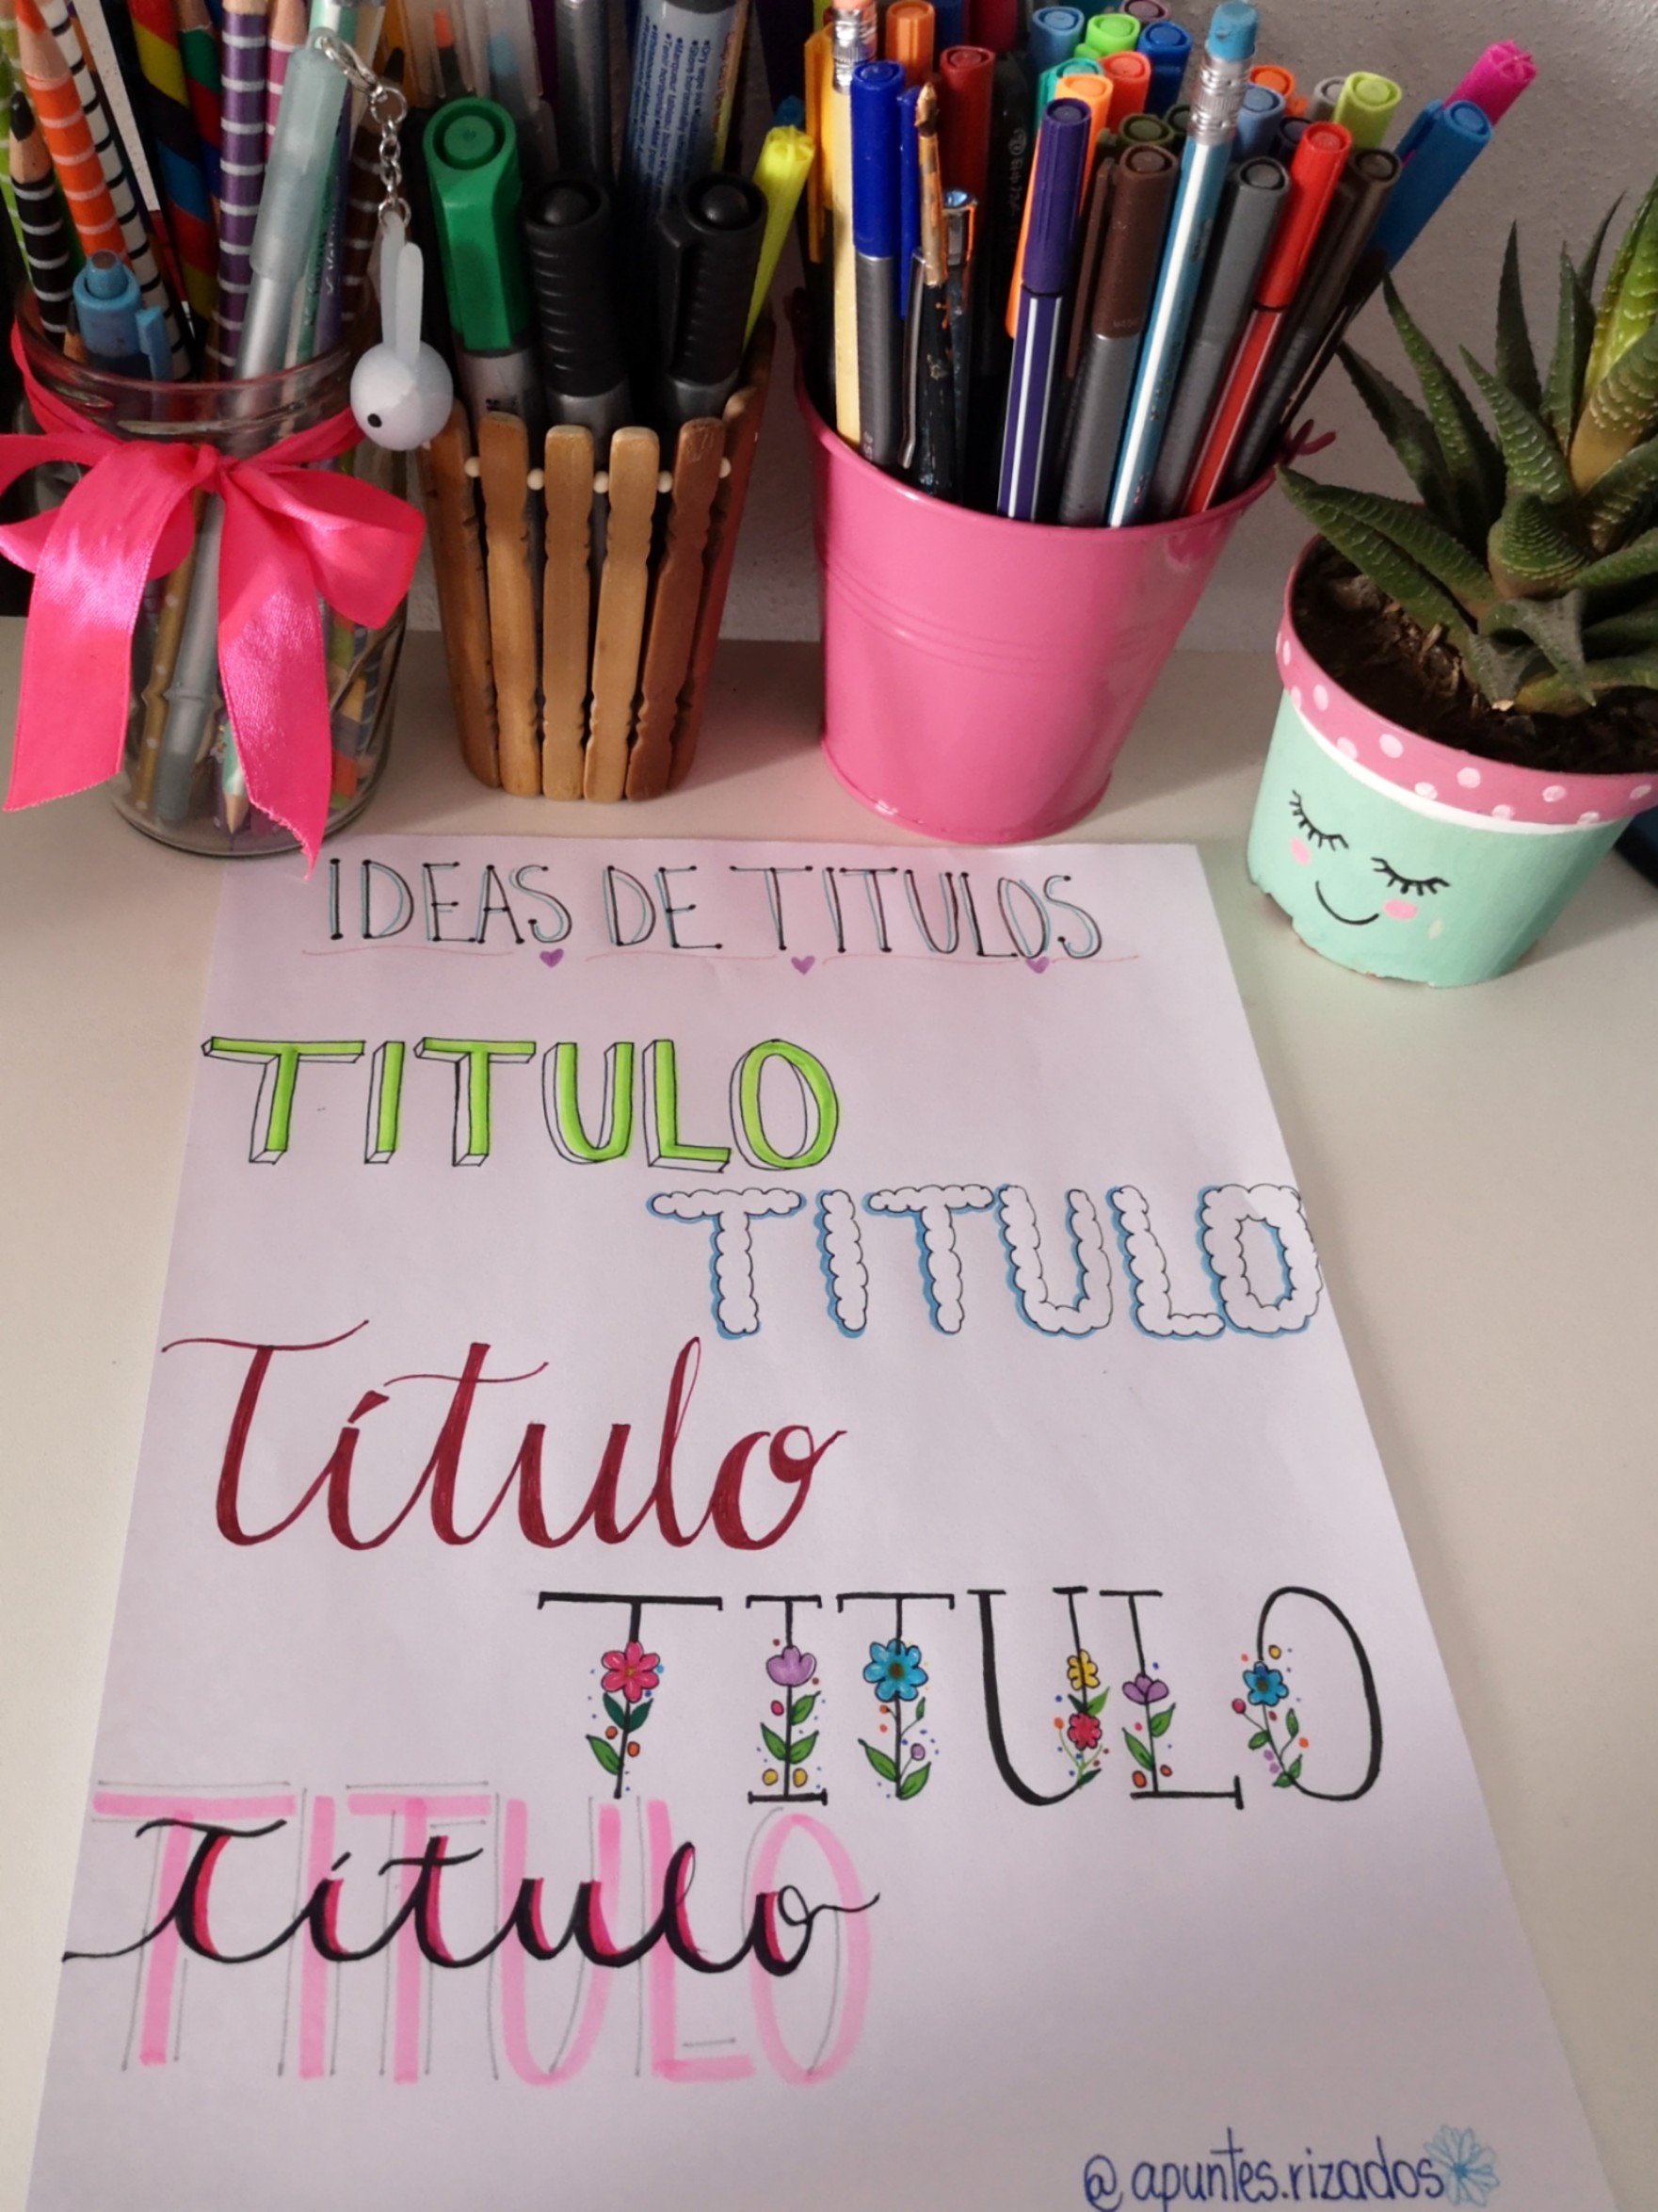 IDEAS DE TITULOS
TITULO
TITULO
Título
TITULO
TITULO
Título
@apuntes.rizados